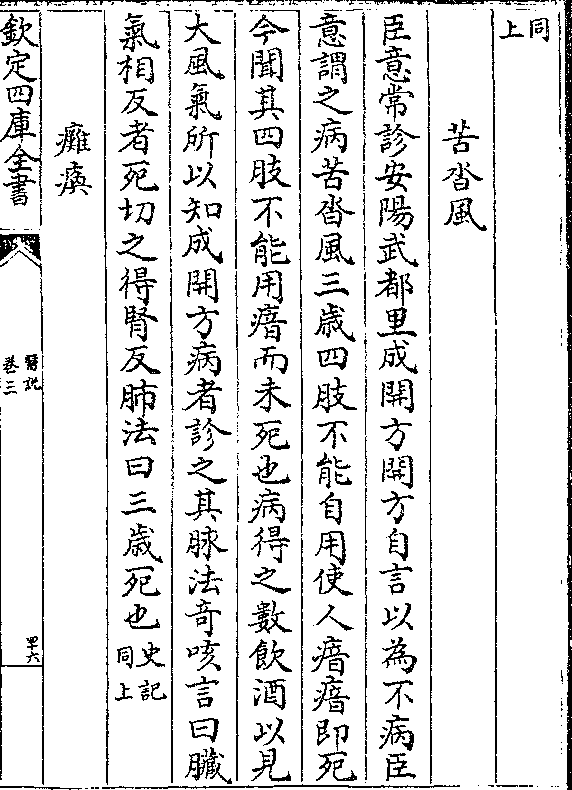 同上
苦沓風
臣意常診安陽武都里成開方開方自言以為不病臣
意謂之病苦沓風三歳四肢不能自用使人瘖瘖即死
今聞其四肢不能用瘖而未死也病得之數飲酒以見
大風氣所以知成開方病者診之其脉法奇咳言曰臓
氣相反者死切之得腎反肺法曰三歳死也史記同上
癱瘓
欽定四庫全書
醫説
卷三
四十六